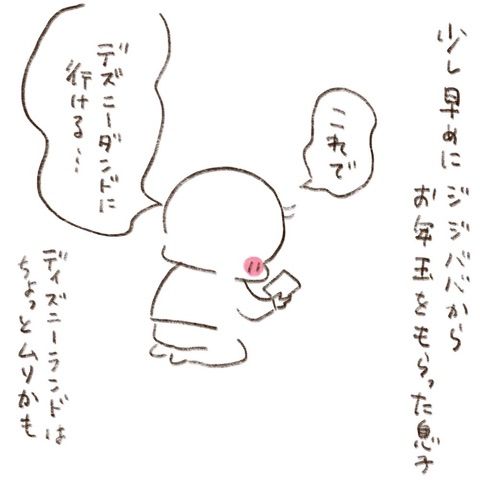 少し早めにジジババから
お年玉をもらった息子
これで
デズニーダンドに
行ける…
ディズニーランドは
ちょっとムリかも